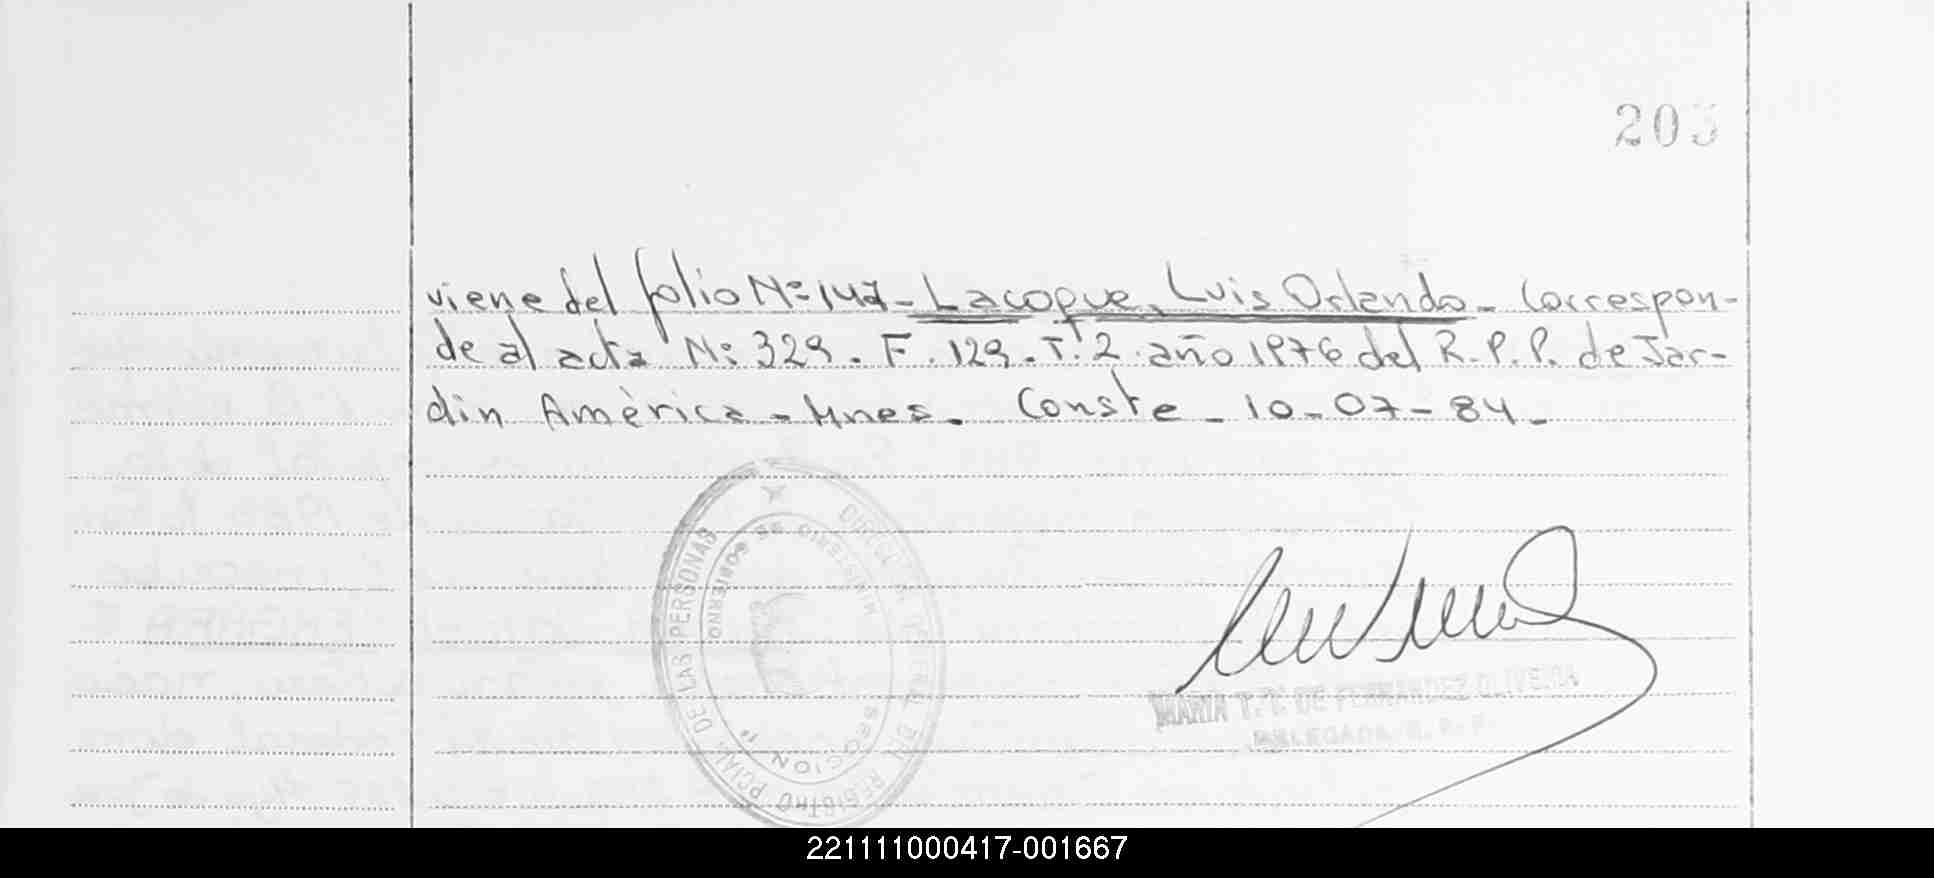 203
viene del folio Nº 147 - Lacoque, Luis Orlando - Correspon-
de al acta Nº 329. F. 129. Tº 2 año 1976 del R.P.P. de Jar-
din Amèrica - Mnes. Conste - 10-07-84 -
DIRECCION GENERAL DEL REGISTRO PCIAL. DE LAS PERSONAS
MINISTERIO DE GOBIERNO
SECCION 1ª
MARIA T. DE FERNANDEZ OLIVEIRA
DELEGADA R. P. P.
221111000417-001667